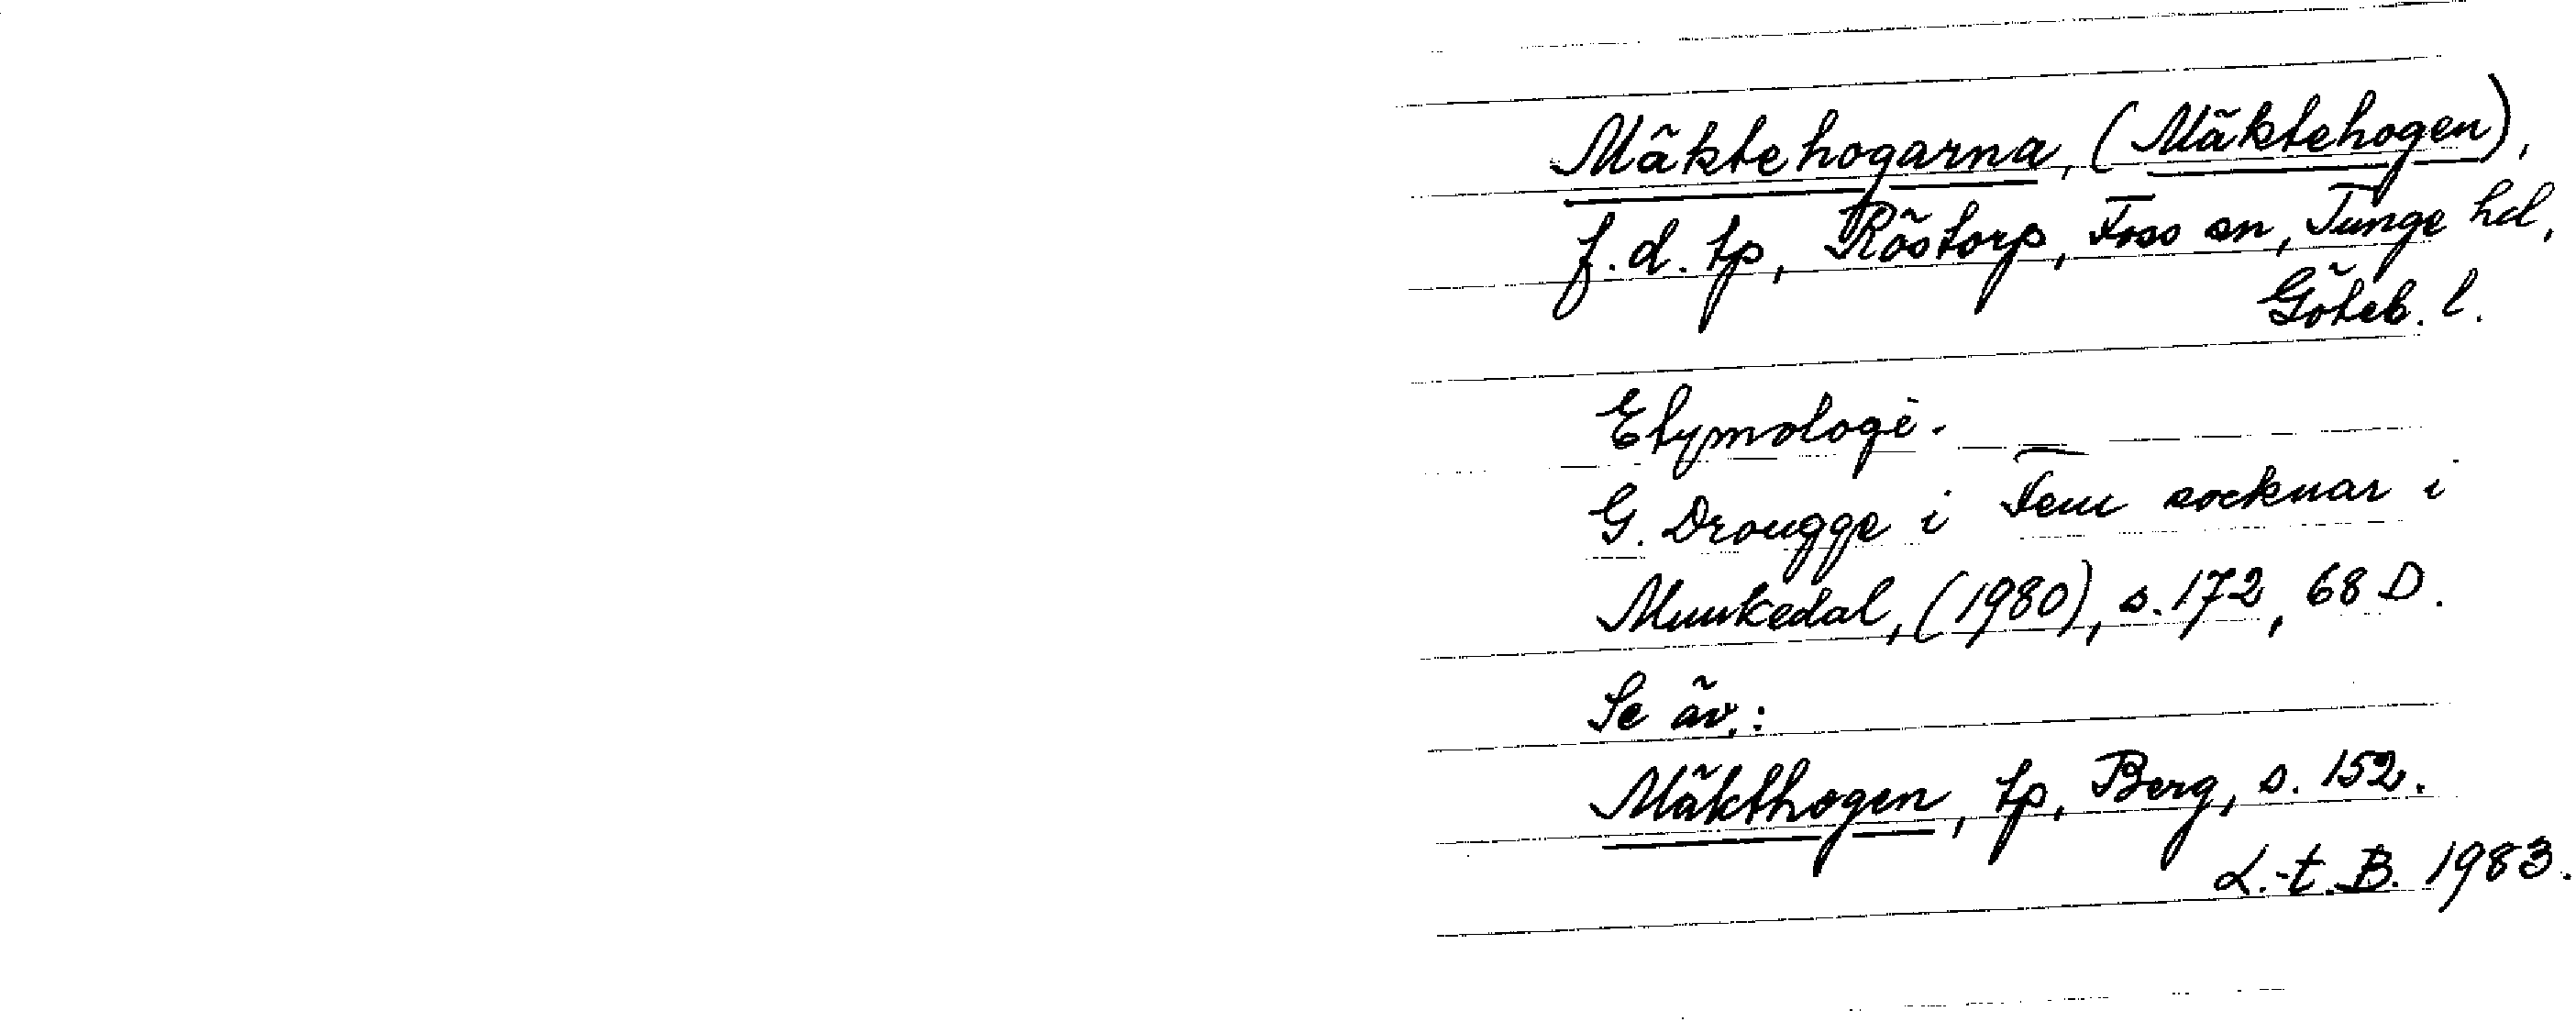 Mäktehogarna, (Mäktehogen),
f.d. tp, Röstorp, Foss sn, Tunge hd,
Göteb. l.
Etymologi.
G. Drougge i Fem socknar i
Munkedal, (1980), s. 172, 68 D.
Se äv.:
Mäkthogen, tp, Berg, s. 152.
L.-t. B. 1983.